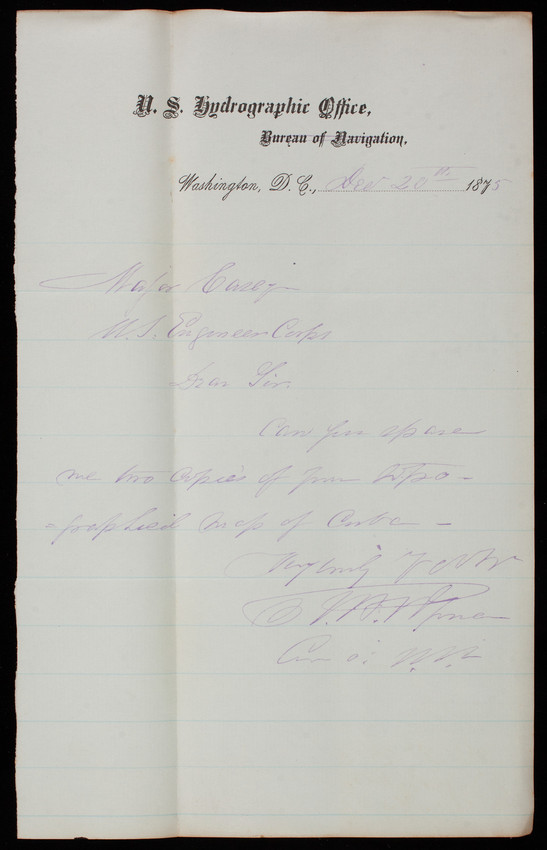 U. S. Hydrographic Office,
Bureau of Navigation,
Washington, D. C., Dec 20th 1875
Major Casey
U.S. Engineer Corps
Dear Sir.
Can you spare
me two copies of your topo-
=graphical map of Cuba -
Very truly Yours
U.S.N.